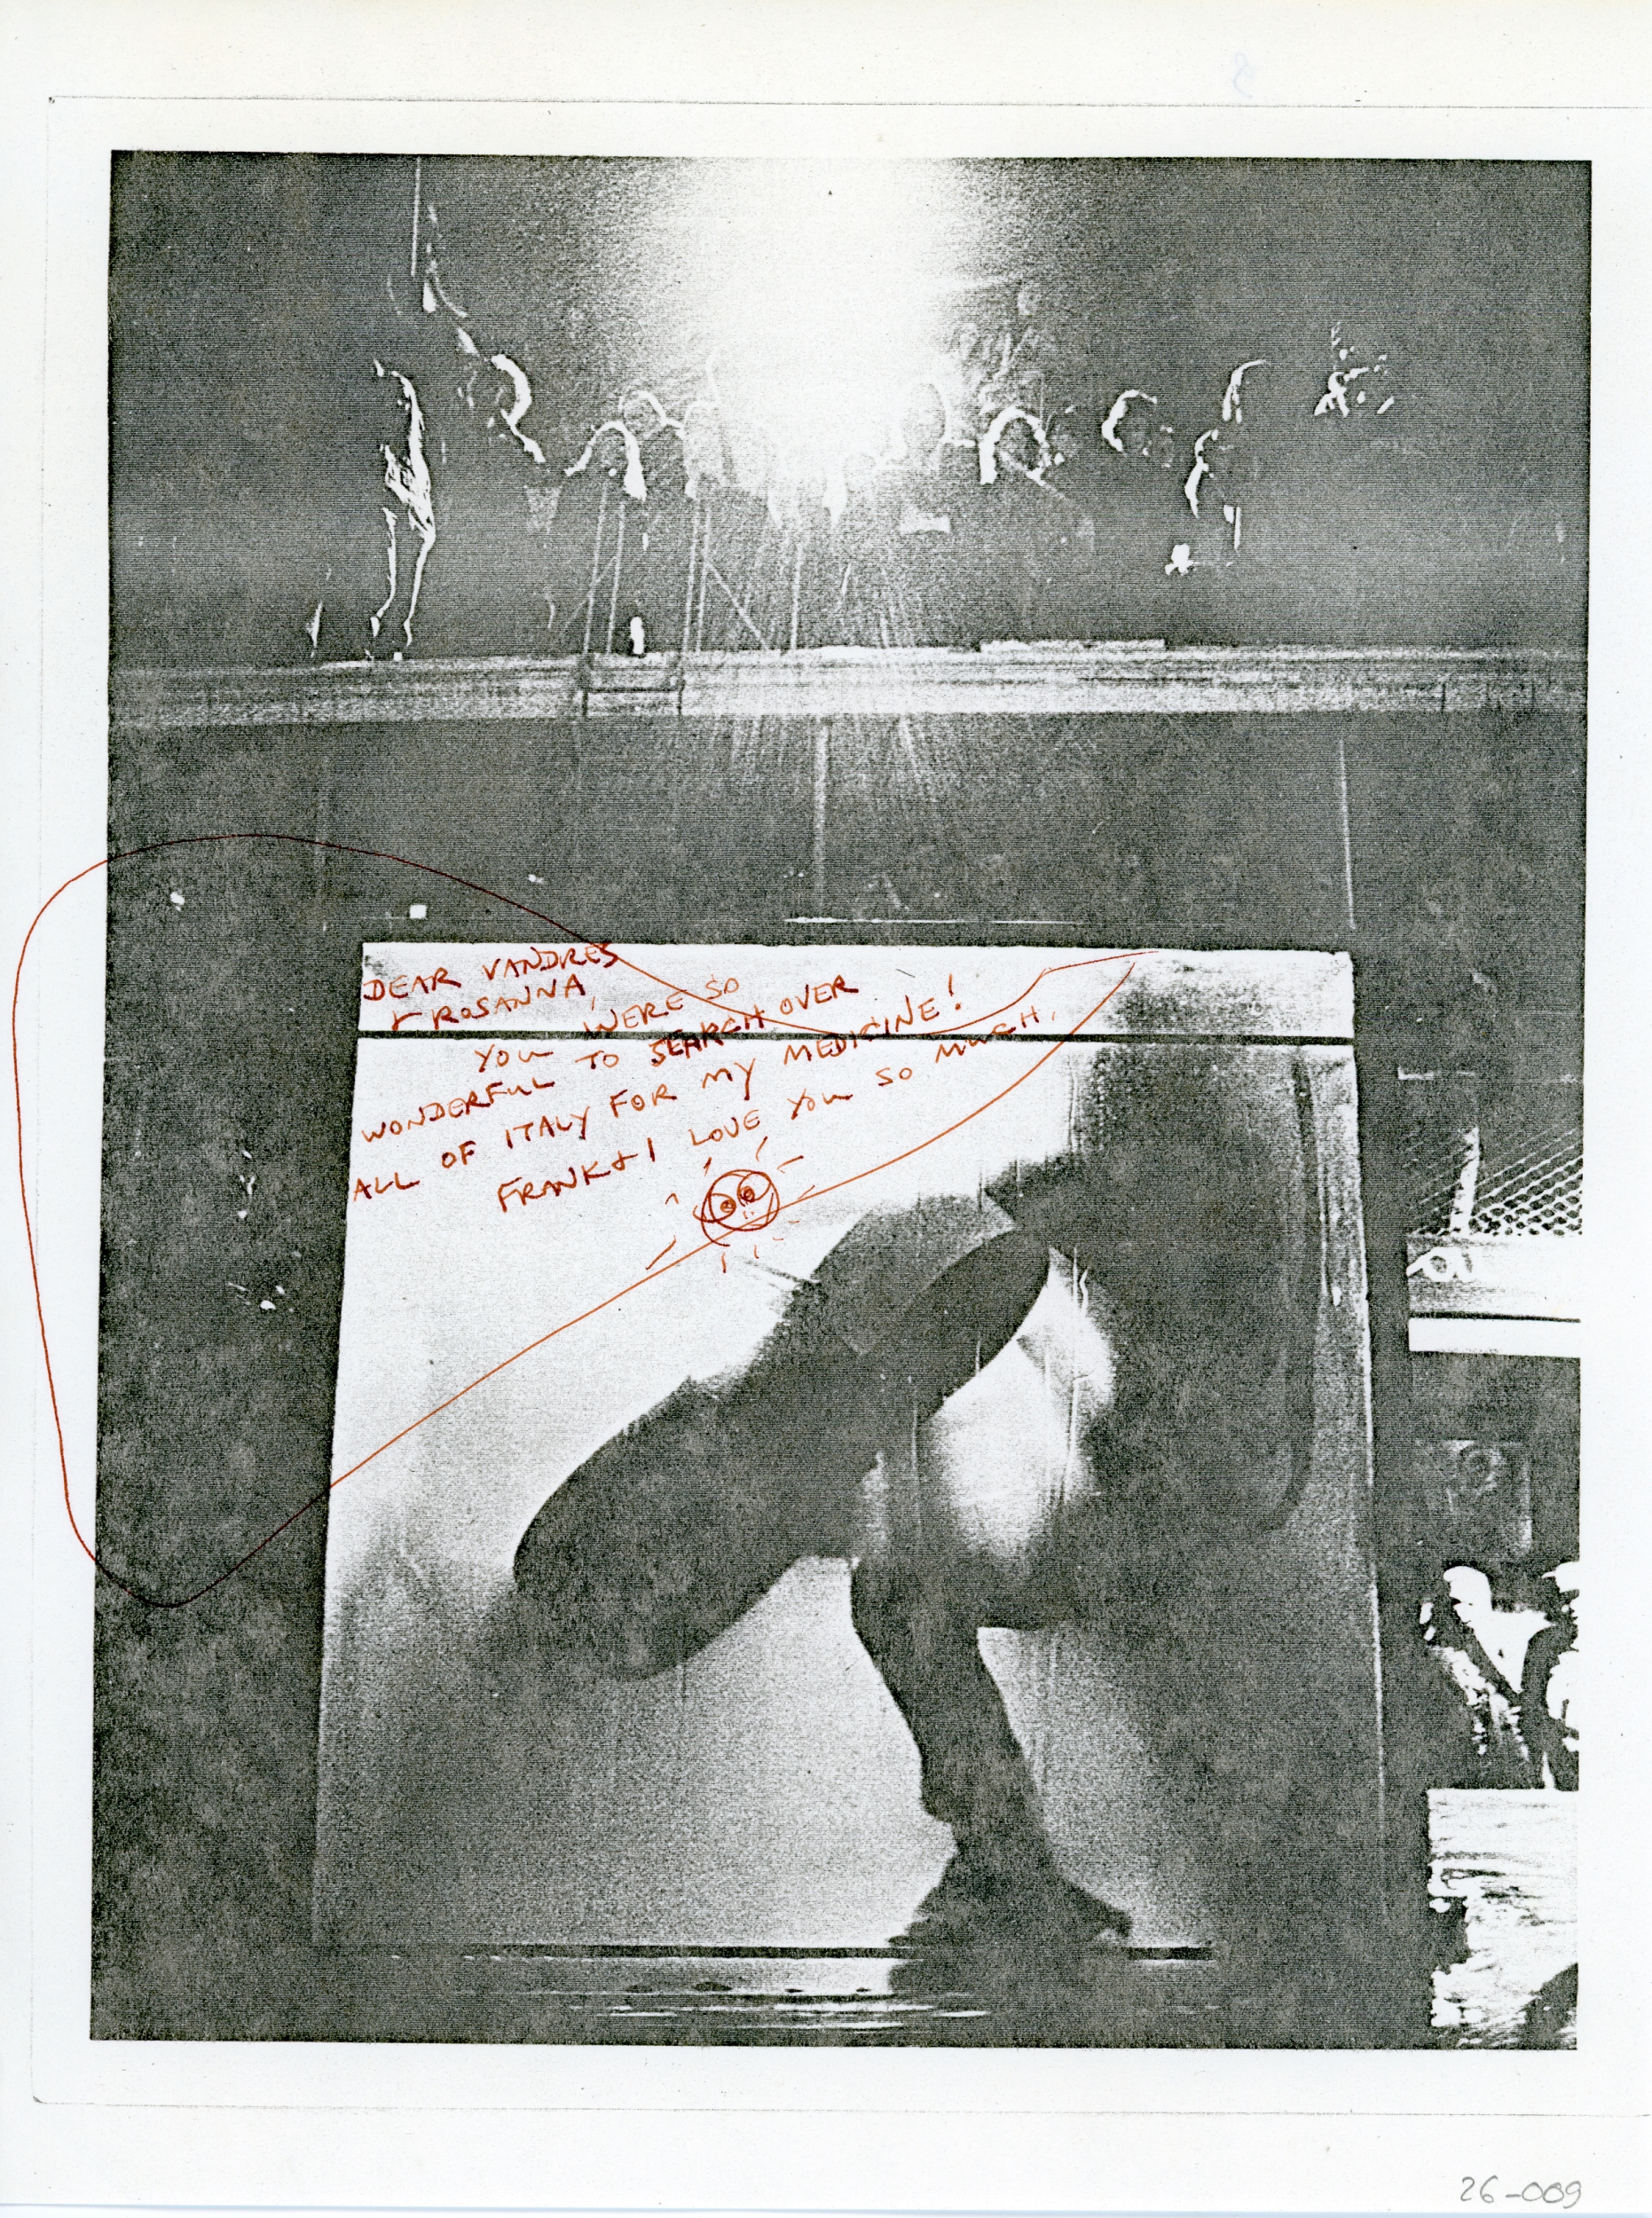 DEAR VANDRES
+ ROSANNA,
YOU WERE SO
WONDERFUL TO SEARCH OVER
ALL OF ITALY FOR MY MEDICINE!
FRANK & I LOVE YOU SO MUCH.
26-009